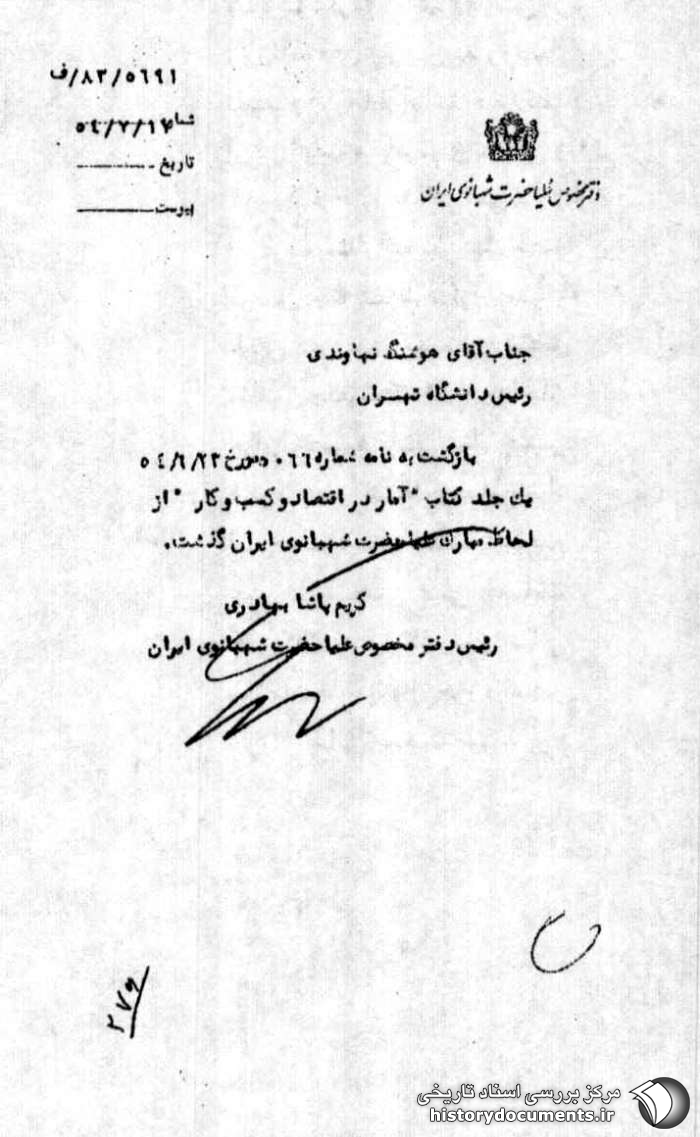 ۸۲/۵۶۹۱/ف
شما ۵۴/۷/۱۷
تاریخ
پیوست
دفتر مخصوص علیاحضرت شهبانوی ایران
جناب آقای هوشنگ نهاوندی
رئیس دانشگاه تهران
بازگشت به نامه شماره مورخ
یک جلد کتاب "آمار در اقتصاد و کسب و کار" از
لحاظ مبارک علیاحضرت شهبانوی ایران گذشت.
کریم پاشا بهادری
رئیس دفتر مخصوص علیاحضرت شهبانوی ایران
۲۷۹
مرکز بررسی اسناد تاریخی
historydocuments.ir